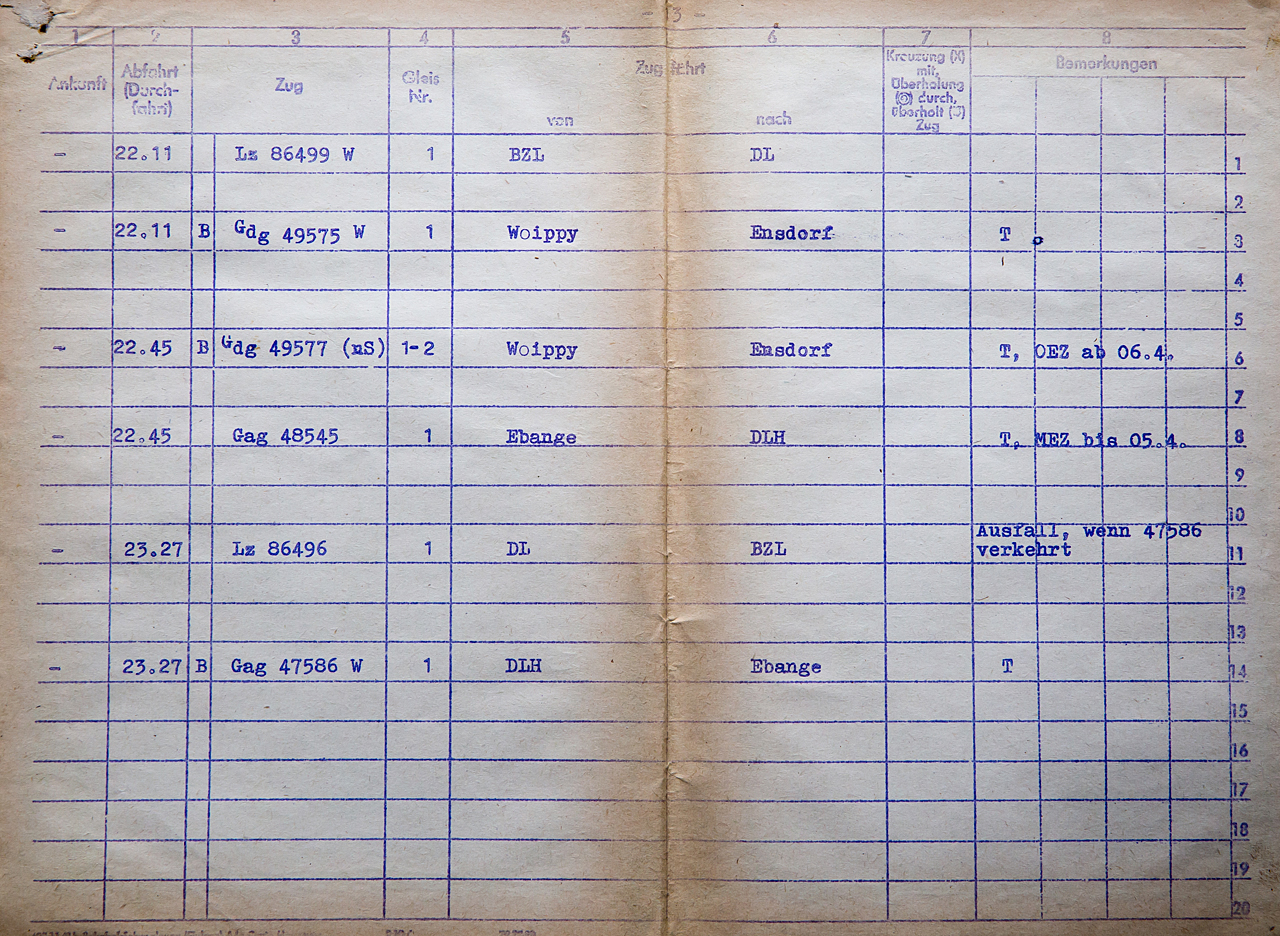 - 3 -
1 2 3 4 5 6 7 8
Ankunft Abfahrt (Durch- fahrt) Zug Gleis Nr. Zug fährt von nach Kreuzung (X) mit, Überholung durch, überholt Zug Bemerkungen
- 22.11 Lz 86499 W 1 BZL DL 1
2
- 22.11 B Gdg 49575 W 1 Woippy Ensdorf T 3
4
5
- 22.45 B Gdg 49577 (nS) 1-2 Woippy Ensdorf T, OEZ ab 06.4. 6
7
- 22.45 Gag 48545 1 Ebange DLH T, MEZ bis 05.4. 8
9
10
Ausfall, wenn 47586
- 23.27 Lz 86496 1 DL BZL verkehrt 11
12
13
- 23.27 B Gag 47586 W 1 DLH Ebange T 14
15
16
17
18
19
20